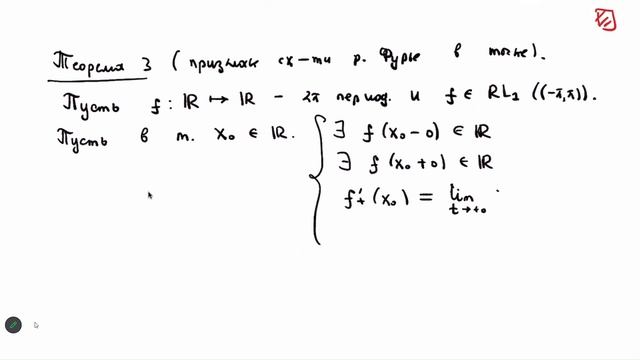 Теорема 3 (признак сх-ти р. Фурье в точке).
Пусть f : ℝ ↦ ℝ - 2π период. и f ∈ RL₁ ((-π,π)).
Пусть в т. x₀ ∈ ℝ. { ∃ f(x₀-0) ∈ ℝ
∃ f(x₀+0) ∈ ℝ
f'₊(x₀) = lim t→+0